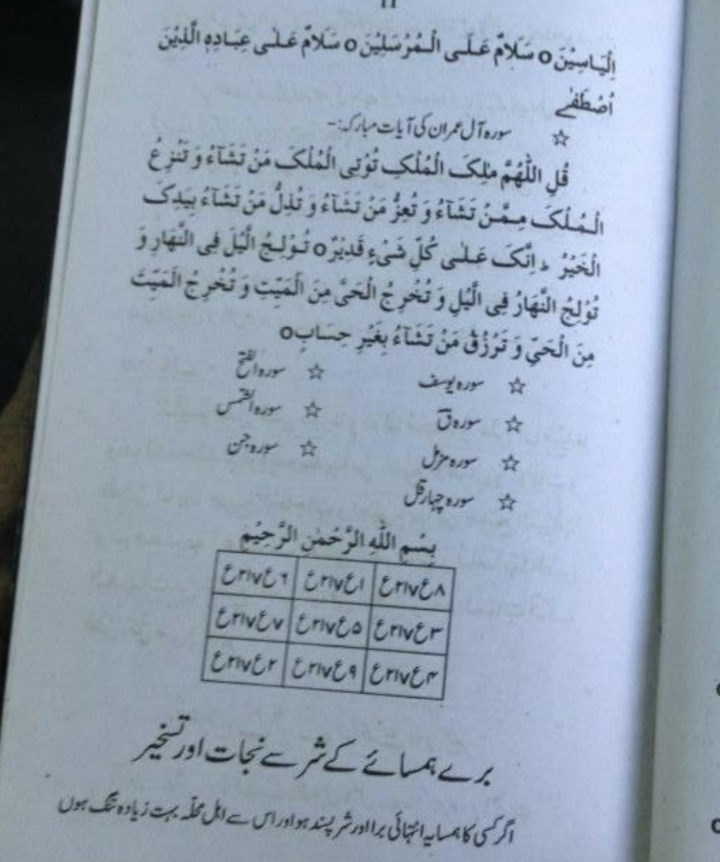 اِلْيَاسِيْنَ o سَلَامٌ عَلَى الْمُرْسَلِيْنَ o سَلَامٌ عَلٰى عِبَادِهِ الَّذِيْنَ
اصْطَفٰے
☆ سورہ آل عمران کی آیات مبارکہ:-
قُلِ اللّٰهُمَّ مٰلِكَ الْمُلْكِ تُؤْتِى الْمُلْكَ مَنْ تَشَآءُ وَ تَنْزِعُ
الْمُلْكَ مِمَّنْ تَشَآءُ وَ تُعِزُّ مَنْ تَشَآءُ وَ تُذِلُّ مَنْ تَشَآءُ بِيَدِكَ
الْخَيْرُ ط اِنَّكَ عَلٰى كُلِّ شَىْءٍ قَدِيْرٌ o تُوْلِجُ الَّيْلَ فِى النَّهَارِ وَ
تُوْلِجُ النَّهَارَ فِى الَّيْلِ وَ تُخْرِجُ الْحَىَّ مِنَ الْمَيِّتِ وَ تُخْرِجُ الْمَيِّتَ
مِنَ الْحَىِّ وَ تَرْزُقُ مَنْ تَشَآءُ بِغَيْرِ حِسَابٍ o
☆ سورہ یوسف ☆ سورہ الفتح
☆ سورہ قٓ ☆ سورہ الشمس
☆ سورہ مزمل ☆ سورہ جن
☆ سورہ چہار قل
بِسْمِ اللّٰهِ الرَّحْمٰنِ الرَّحِيْمِ
۸ع۲۱۷ع ۱ع۲۱۷ع ۶ع۲۱۷ع
۳ع۲۱۷ع ۵ع۲۱۷ع ۷ع۲۱۷ع
۴ع۲۱۷ع ۹ع۲۱۷ع ۲ع۲۱۷ع
برے ہمسائے کے شر سے نجات اور تسخیر
اگر کسی کا ہمسایہ انتہائی برا اور شر پسند ہو اور اس سے اہل محلّہ بہت زیادہ تنگ ہوں